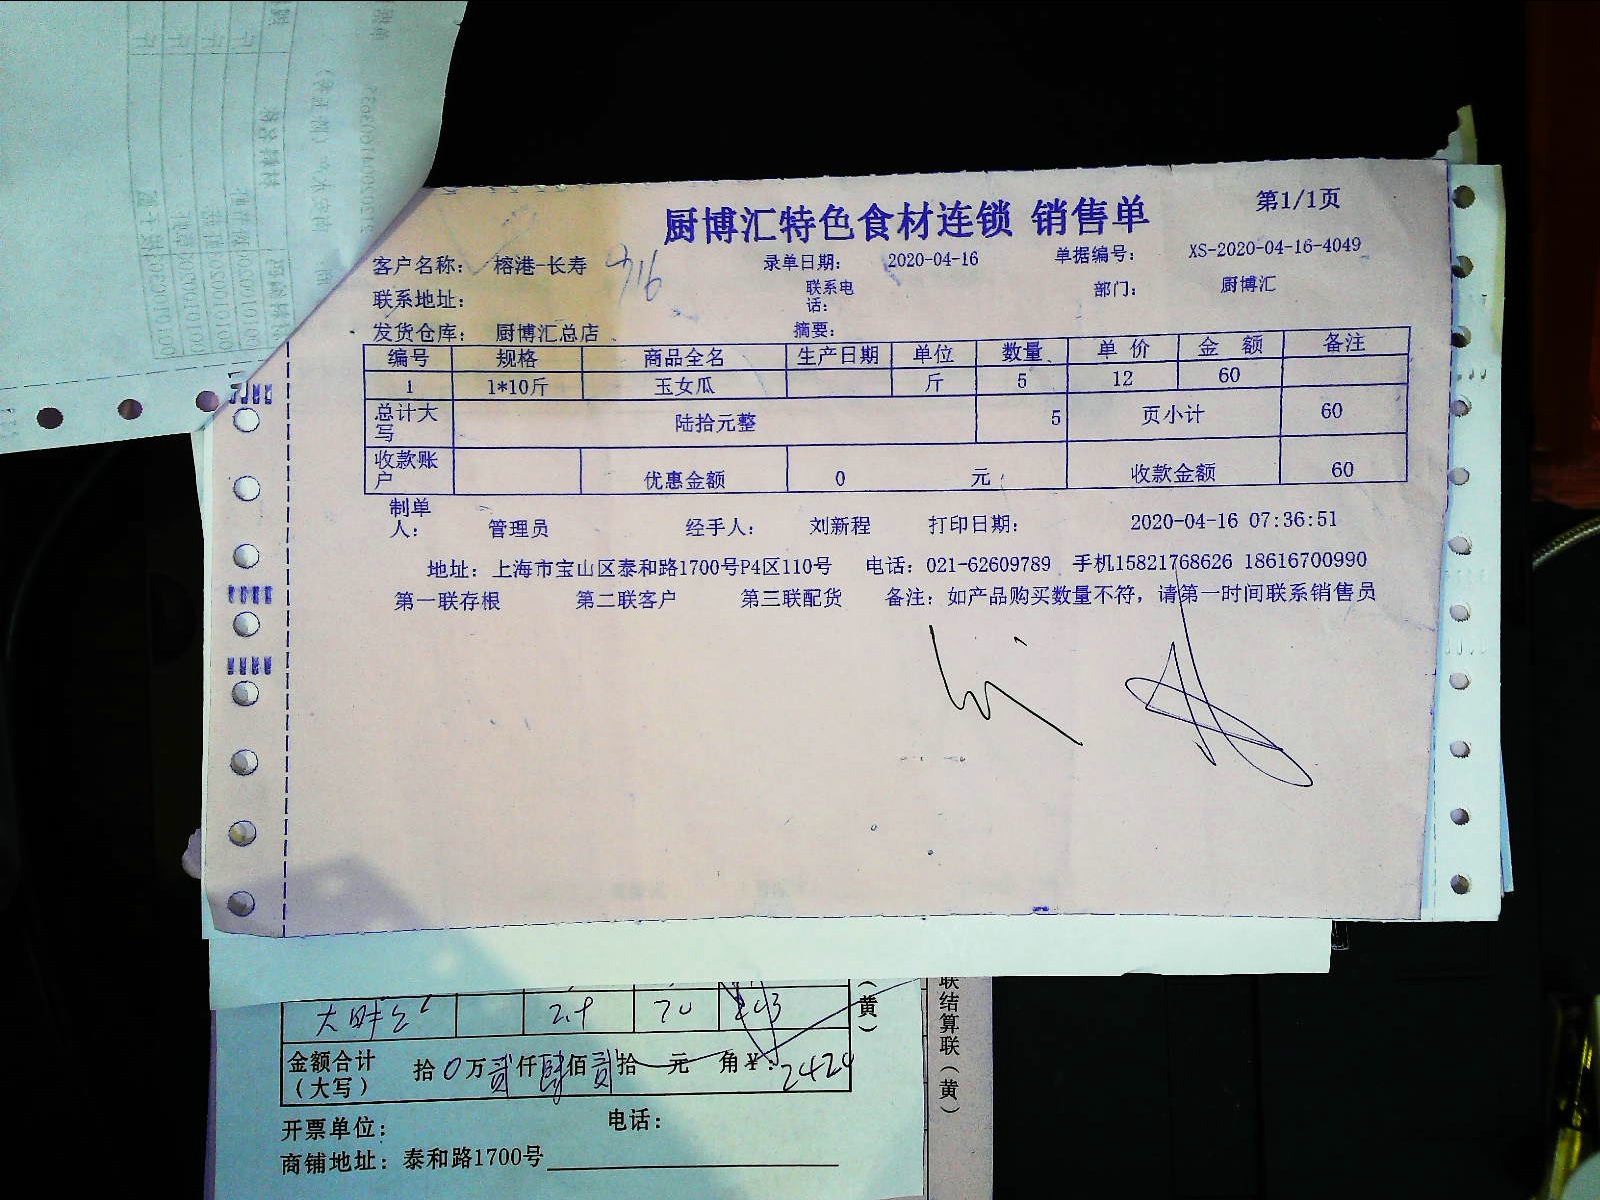 厨博汇特色食材连锁 销售单 第1/1页
客户名称: 榕港-长寿 录单日期: 2020-04-16 单据编号: XS-2020-04-16-4049
联系地址: 联系电话: 部门: 厨博汇
发货仓库: 厨博汇总店 摘要:
编号 规格 商品全名 生产日期 单位 数量 单价 金额 备注
1 1*10斤 玉女瓜 斤 5 12 60
总计大写 陆拾元整 5 页小计 60
收款账户 优惠金额 0 元 收款金额 60
制单人: 管理员 经手人: 刘新程 打印日期: 2020-04-16 07:36:51
地址: 上海市宝山区泰和路1700号P4区110号 电话: 021-62609789 手机15821768626 18616700990
第一联存根 第二联客户 第三联配货 备注: 如产品购买数量不符, 请第一时间联系销售员
(黄)
联结算联(黄)
金额合计(大写) 拾0万贰仟肆佰贰拾 元 角¥: 2424
开票单位: 电话:
商铺地址: 泰和路1700号